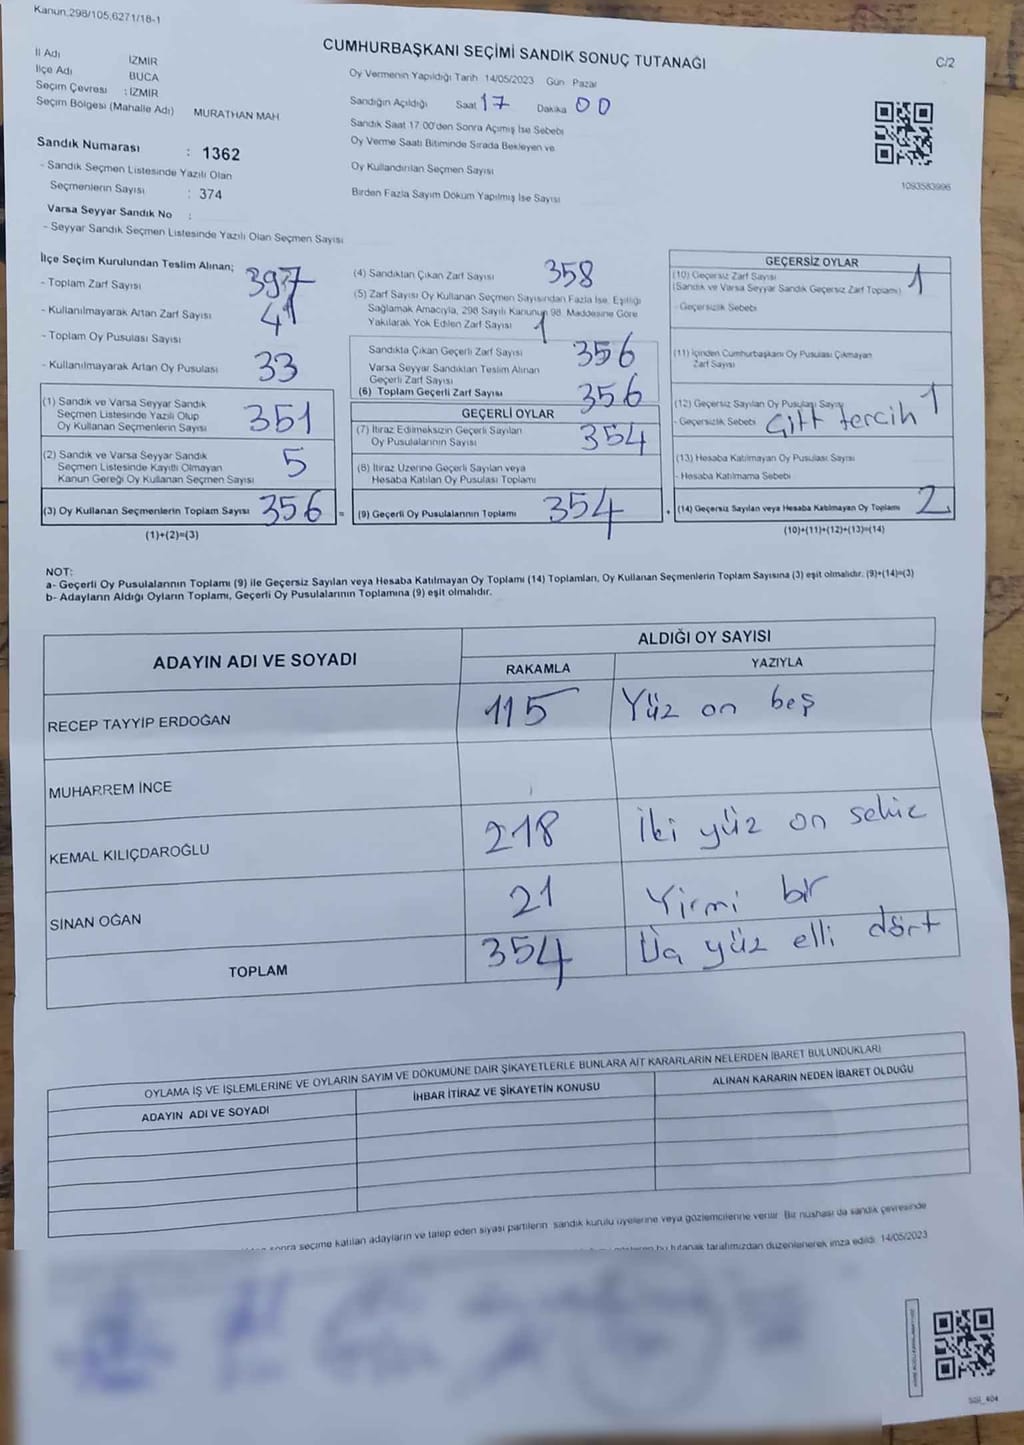 Kanun:298/105,6271/18-1
CUMHURBAŞKANI SEÇİMİ SANDIK SONUÇ TUTANAĞI
C/2
İl Adı İZMİR
İlçe Adı BUCA
Seçim Çevresi : İZMİR
Seçim Bölgesi (Mahalle Adı) MURATHAN MAH
Sandık Numarası : 1362
- Sandık Seçmen Listesinde Yazılı Olan
Seçmenlerin Sayısı : 374
Varsa Seyyar Sandık No :
- Seyyar Sandık Seçmen Listesinde Yazılı Olan Seçmen Sayısı
Oy Vermenin Yapıldığı Tarih 14/05/2023 Gün Pazar
Sandığın Açıldığı Saat 17 Dakika 00
Sandık Saat 17:00'den Sonra Açımış İse Sebebi
Oy Verme Saati Bitiminde Sırada Bekleyen ve
Oy Kullandırılan Seçmen Sayısı
Birden Fazla Sayım Döküm Yapılmış İse Sayısı
1093583996
İlçe Seçim Kurulundan Teslim Alınan;
- Toplam Zarf Sayısı 397
- Kullanılmayarak Artan Zarf Sayısı 41
- Toplam Oy Pusulası Sayısı
- Kullanılmayarak Artan Oy Pusulası 33
(1) Sandık ve Varsa Seyyar Sandık
Seçmen Listesinde Yazılı Olup
Oy Kullanan Seçmenlerin Sayısı 351
(2) Sandık ve Varsa Seyyar Sandık
Seçmen Listesinde Kayıtlı Olmayan
Kanun Gereği Oy Kullanan Seçmen Sayısı 5
(3) Oy Kullanan Seçmenlerin Toplam Sayısı 356 =
(1)+(2)=(3)
(4) Sandıktan Çıkan Zarf Sayısı 358
(5) Zarf Sayısı Oy Kullanan Seçmen Sayısından Fazla İse, Eşitliği
Sağlamak Amacıyla, 298 Sayılı Kanunun 98. Maddesine Göre
Yakılarak Yok Edilen Zarf Sayısı 1
Sandıkta Çıkan Geçerli Zarf Sayısı 356
Varsa Seyyar Sandıktan Teslim Alınan
Geçerli Zarf Sayısı
(6) Toplam Geçerli Zarf Sayısı 356
GEÇERLİ OYLAR
(7) İtiraz Edilmeksizin Geçerli Sayılan
Oy Pusulalarının Sayısı 354
(8) İtiraz Üzerine Geçerli Sayılan veya
Hesaba Katılan Oy Pusulası Toplamı
(9) Geçerli Oy Pusulalarının Toplamı 354 +
GEÇERSİZ OYLAR
(10) Geçersiz Zarf Sayısı 1
(Sandık ve Varsa Seyyar Sandık Geçersiz Zarf Toplamı)
- Geçersizlik Sebebi
(11) İçinden Cumhurbaşkanı Oy Pusulası Çıkmayan
Zarf Sayısı
(12) Geçersiz Sayılan Oy Pusulası Sayısı 1
- Geçersizlik Sebebi Çift tercih
(13) Hesaba Katılmayan Oy Pusulası Sayısı
- Hesaba Katılmama Sebebi
(14) Geçersiz Sayılan veya Hesaba Katılmayan Oy Toplamı 2
(10)+(11)+(12)+(13)=(14)
NOT:
a- Geçerli Oy Pusulalarının Toplamı (9) ile Geçersiz Sayılan veya Hesaba Katılmayan Oy Toplamı (14) Toplamları, Oy Kullanan Seçmenlerin Toplam Sayısına (3) eşit olmalıdır. (9)+(14)=(3)
b- Adayların Aldığı Oyların Toplamı, Geçerli Oy Pusulalarının Toplamına (9) eşit olmalıdır.
ADAYIN ADI VE SOYADI ALDIĞI OY SAYISI
RAKAMLA YAZIYLA
RECEP TAYYİP ERDOĞAN 115 Yüz on beş
MUHARREM İNCE
KEMAL KILIÇDAROĞLU 218 İki yüz on sekiz
SİNAN OĞAN 21 Yirmi bir
TOPLAM 354 Üç yüz elli dört
OYLAMA İŞ VE İŞLEMLERİNE VE OYLARIN SAYIM VE DÖKÜMÜNE DAİR ŞİKAYETLERLE BUNLARA AİT KARARLARIN NELERDEN İBARET BULUNDUKLARI
ADAYIN ADI VE SOYADI İHBAR İTİRAZ VE ŞİKAYETİN KONUSU ALINAN KARARIN NEDEN İBARET OLDUĞU
sonra seçime katılan adayların ve talep eden siyasi partilerin sandık kurulu üyelerine veya gözlemcilerine verilir. Bir nüshası da sandık çevresinde
bu tutanak tarafımızdan düzenlenerek imza edildi. 14/05/2023